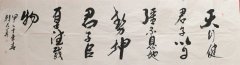 天行健
君子以自
强不息地
勢坤
君子以
厚德載
物